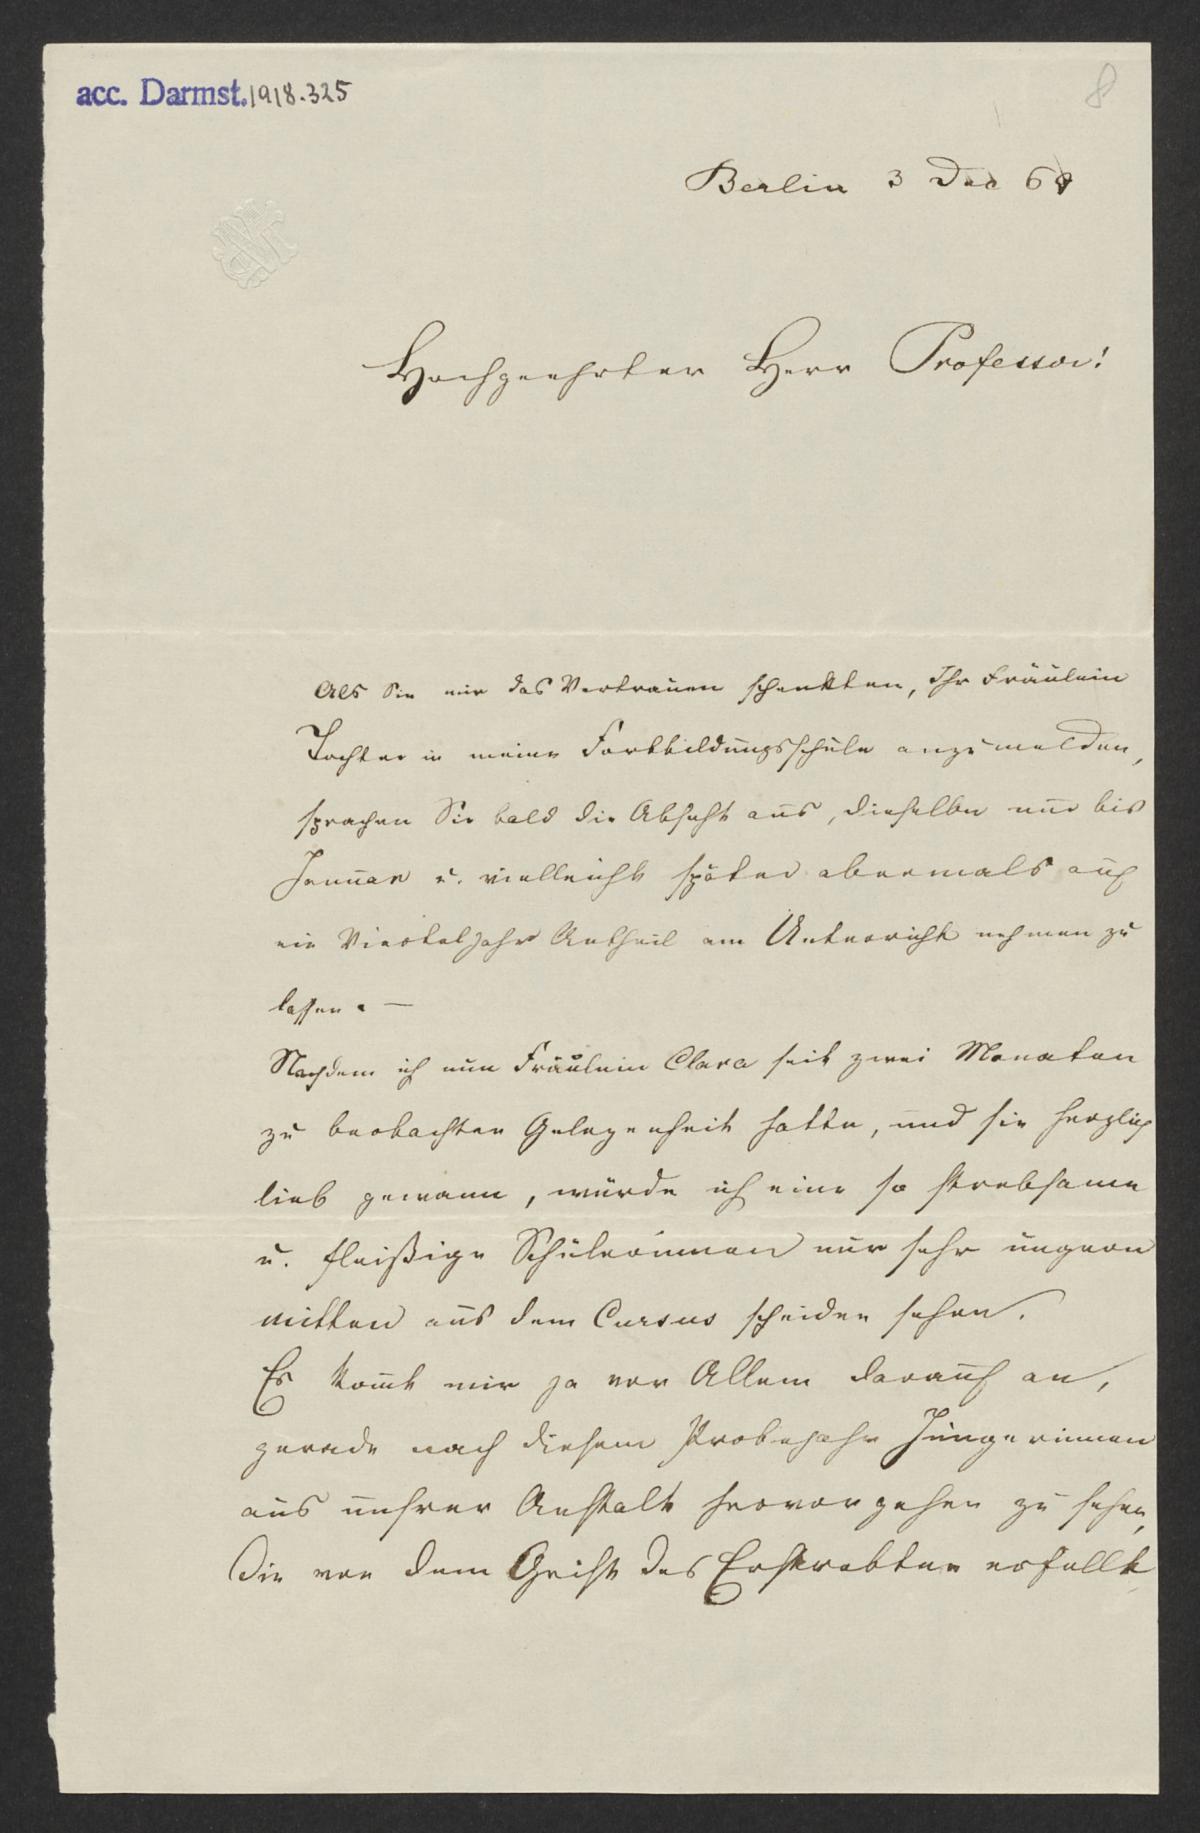 acc. Darmst. 1918.325
8
Berlin 3 Dec 68
Hochgeehrter Herr Professor!
Als Sie mir das Vertrauen schenkten, Ihr Fräulein
Tochter in meine Fortbildungsschule anzumelden,
sprachen Sie bald die Absicht aus, dieselbe nur bis
Januar u. vielleicht später abermals auf
ein Vierteljahr Antheil am Unterricht nehmen zu
lassen. —
Nachdem ich nun Fräulein Clara seit zwei Monaten
zu beobachten Gelegenheit hatte, und sie herzlich
lieb gewann, würde ich eine so strebsame
u. fleißige Schülerinnen nur sehr ungern
mitten aus dem Cursus scheiden sehen.
Es kom̄t mir ja vor Allem darauf an,
gerade nach diesem Probejahr Jüngerinnen
aus unsrer Anstalt hervorgehen zu sehen,
die von dem Geist des Erstrebten erfüllt